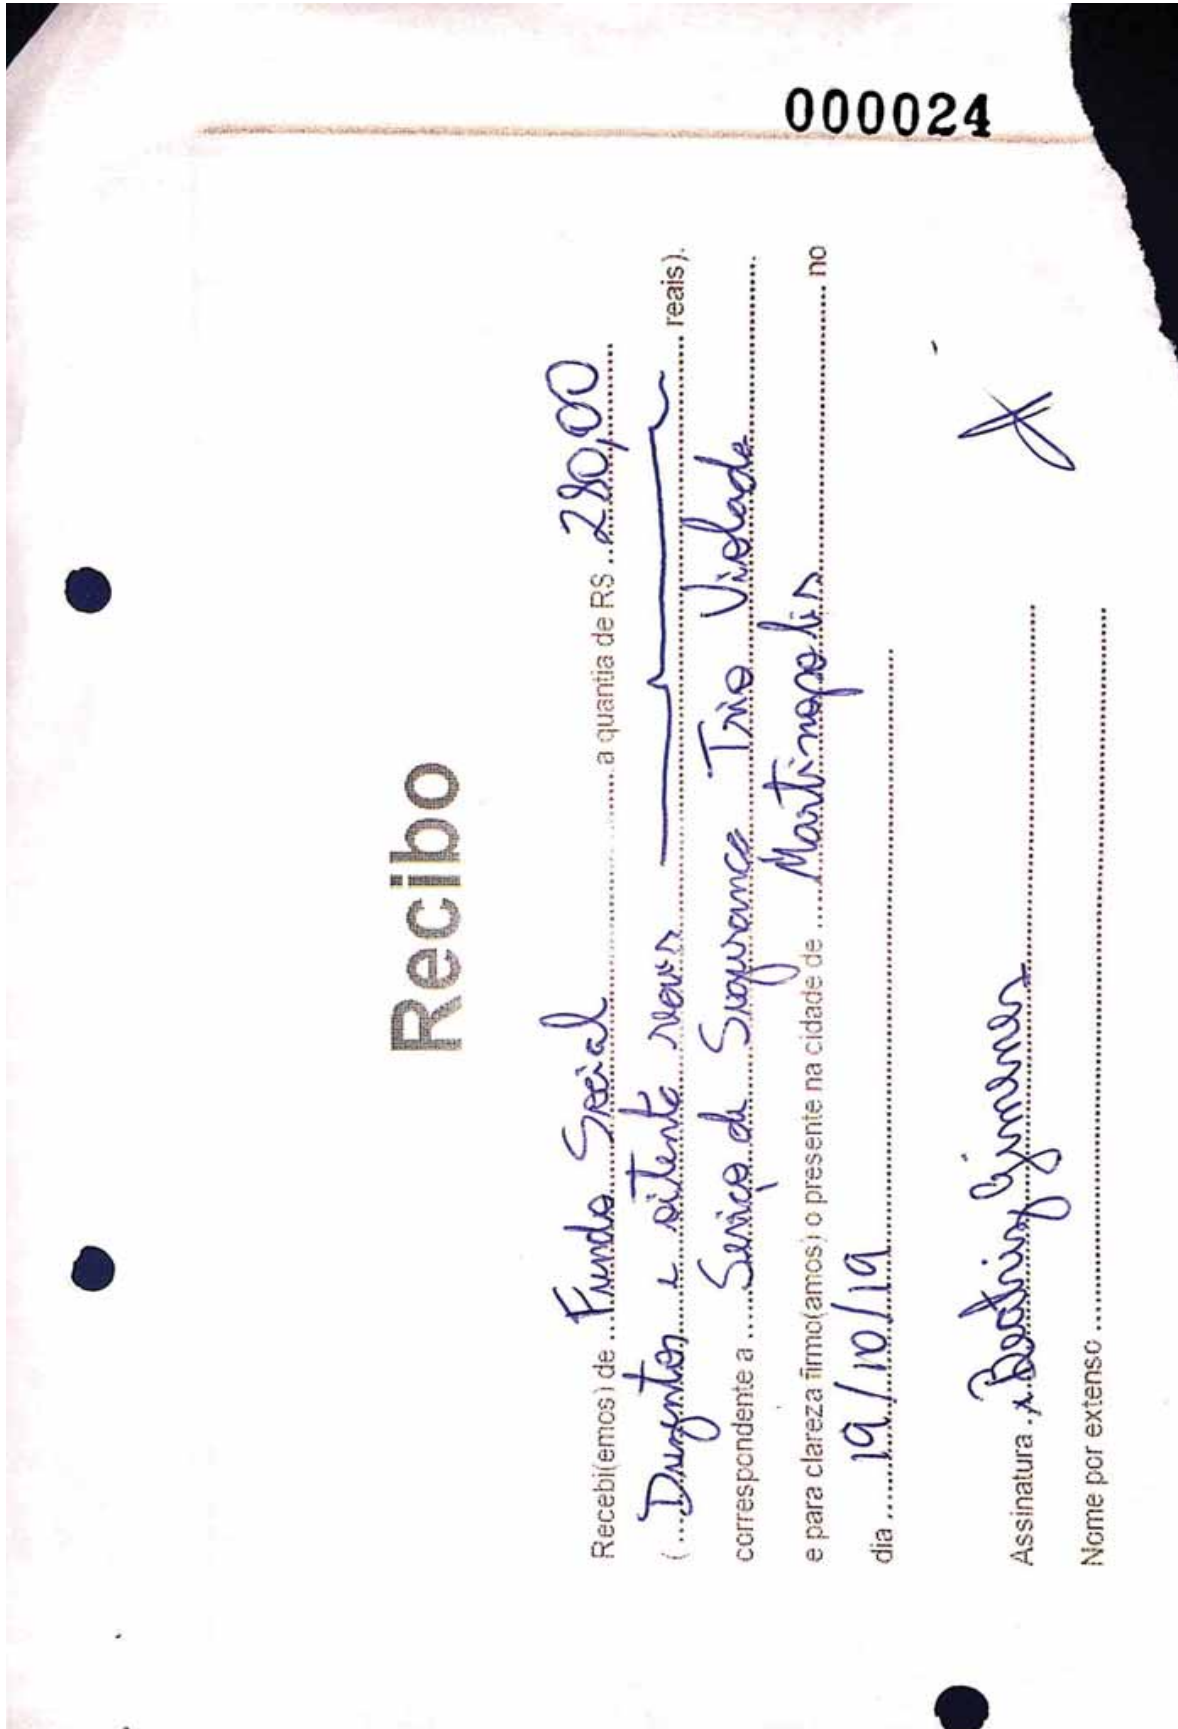 000024
Recibo
Recebi(emos) de Fundo Social a quantia de R$ 280,00
( Duzentos e oitenta reais reais).
correspondente a Serviço de Segurança Trio Violada
e para clareza firmo(amos) o presente na cidade de Martinopolis no
dia 19/10/19
Assinatura x Beatriz Gimenez
Nome por extenso